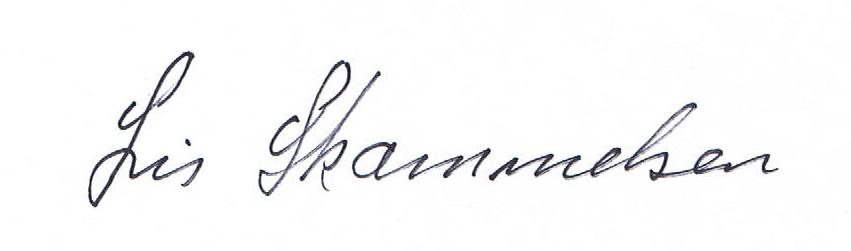 Lis Skammelsen